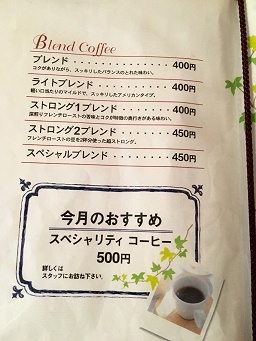 Blend Coffee
ブレンド・・・・・・・・・・・400円
コクがありながら、スッキリしたバランスのとれた味わい。
ライトブレンド・・・・・・・・400円
軽い口当たりのマイルドで、スッキリしたアメリカンタイプ。
ストロング1ブレンド・・・・・400円
深煎りフレンチローストの苦味とコクが特徴の奥行きがある味わい。
ストロング2ブレンド・・・・・450円
フレンチローストの豆を2杯分使った超ストロング。
スペシャルブレンド・・・・・・450円
今月のおすすめ
スペシャリティ コーヒー
500円
詳しくは
スタッフにお訪ね下さい。